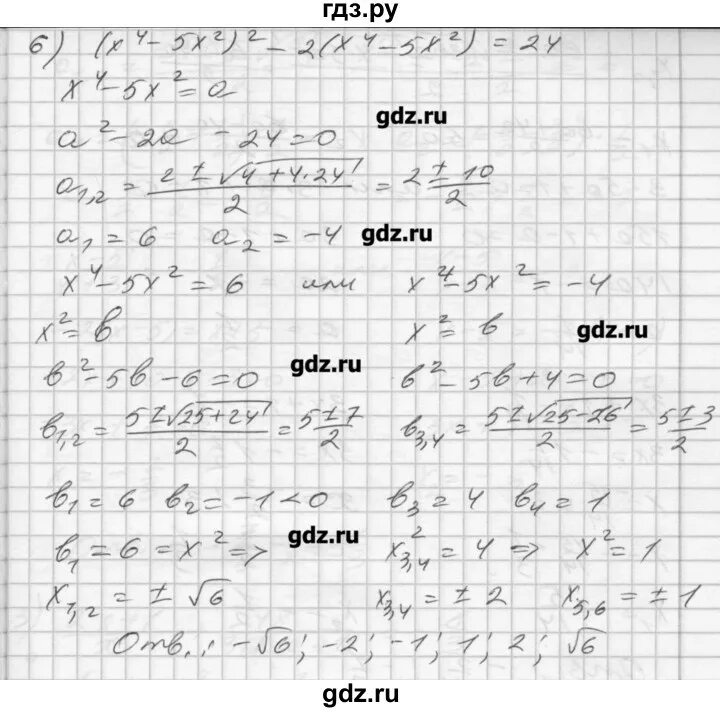 гдз.ру
б) (x⁴ - 5x²)² - 2(x⁴ - 5x²) = 24
x⁴ - 5x² = a
gdz.ru
a² - 2a - 24 = 0
a₁,₂ = (2 ± √(4 + 4·24))/2 = (2 ± 10)/2
a₁ = 6 a₂ = -4 gdz.ru
x⁴ - 5x² = 6 или x⁴ - 5x² = -4
x² = b x² = b gdz.ru
gdz.ru
b² - 5b - 6 = 0 b² - 5b + 4 = 0
b₁,₂ = (5 ± √(25 + 24))/2 = (5 ± 7)/2 b₃,₄ = (5 ± √(25 - 16))/2 = (5 ± 3)/2
b₁ = 6 b₂ = -1 < 0 b₃ = 4 b₄ = 1
gdz.ru
b₁ = 6 = x² => x²₃,₄ = 4 => x² = 1
x₁,₂ = ± √6 x₃,₄ = ± 2 x₅,₆ = ± 1
Отв.: -√6; -2; -1; 1; 2; √6
gdz.ru